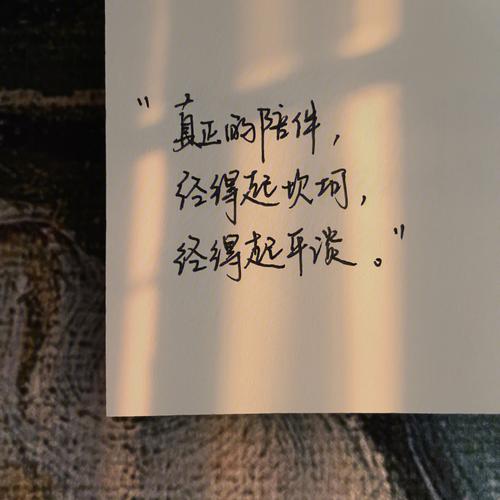 "真正的陪伴，
经得起坎坷，
经得起平淡。"